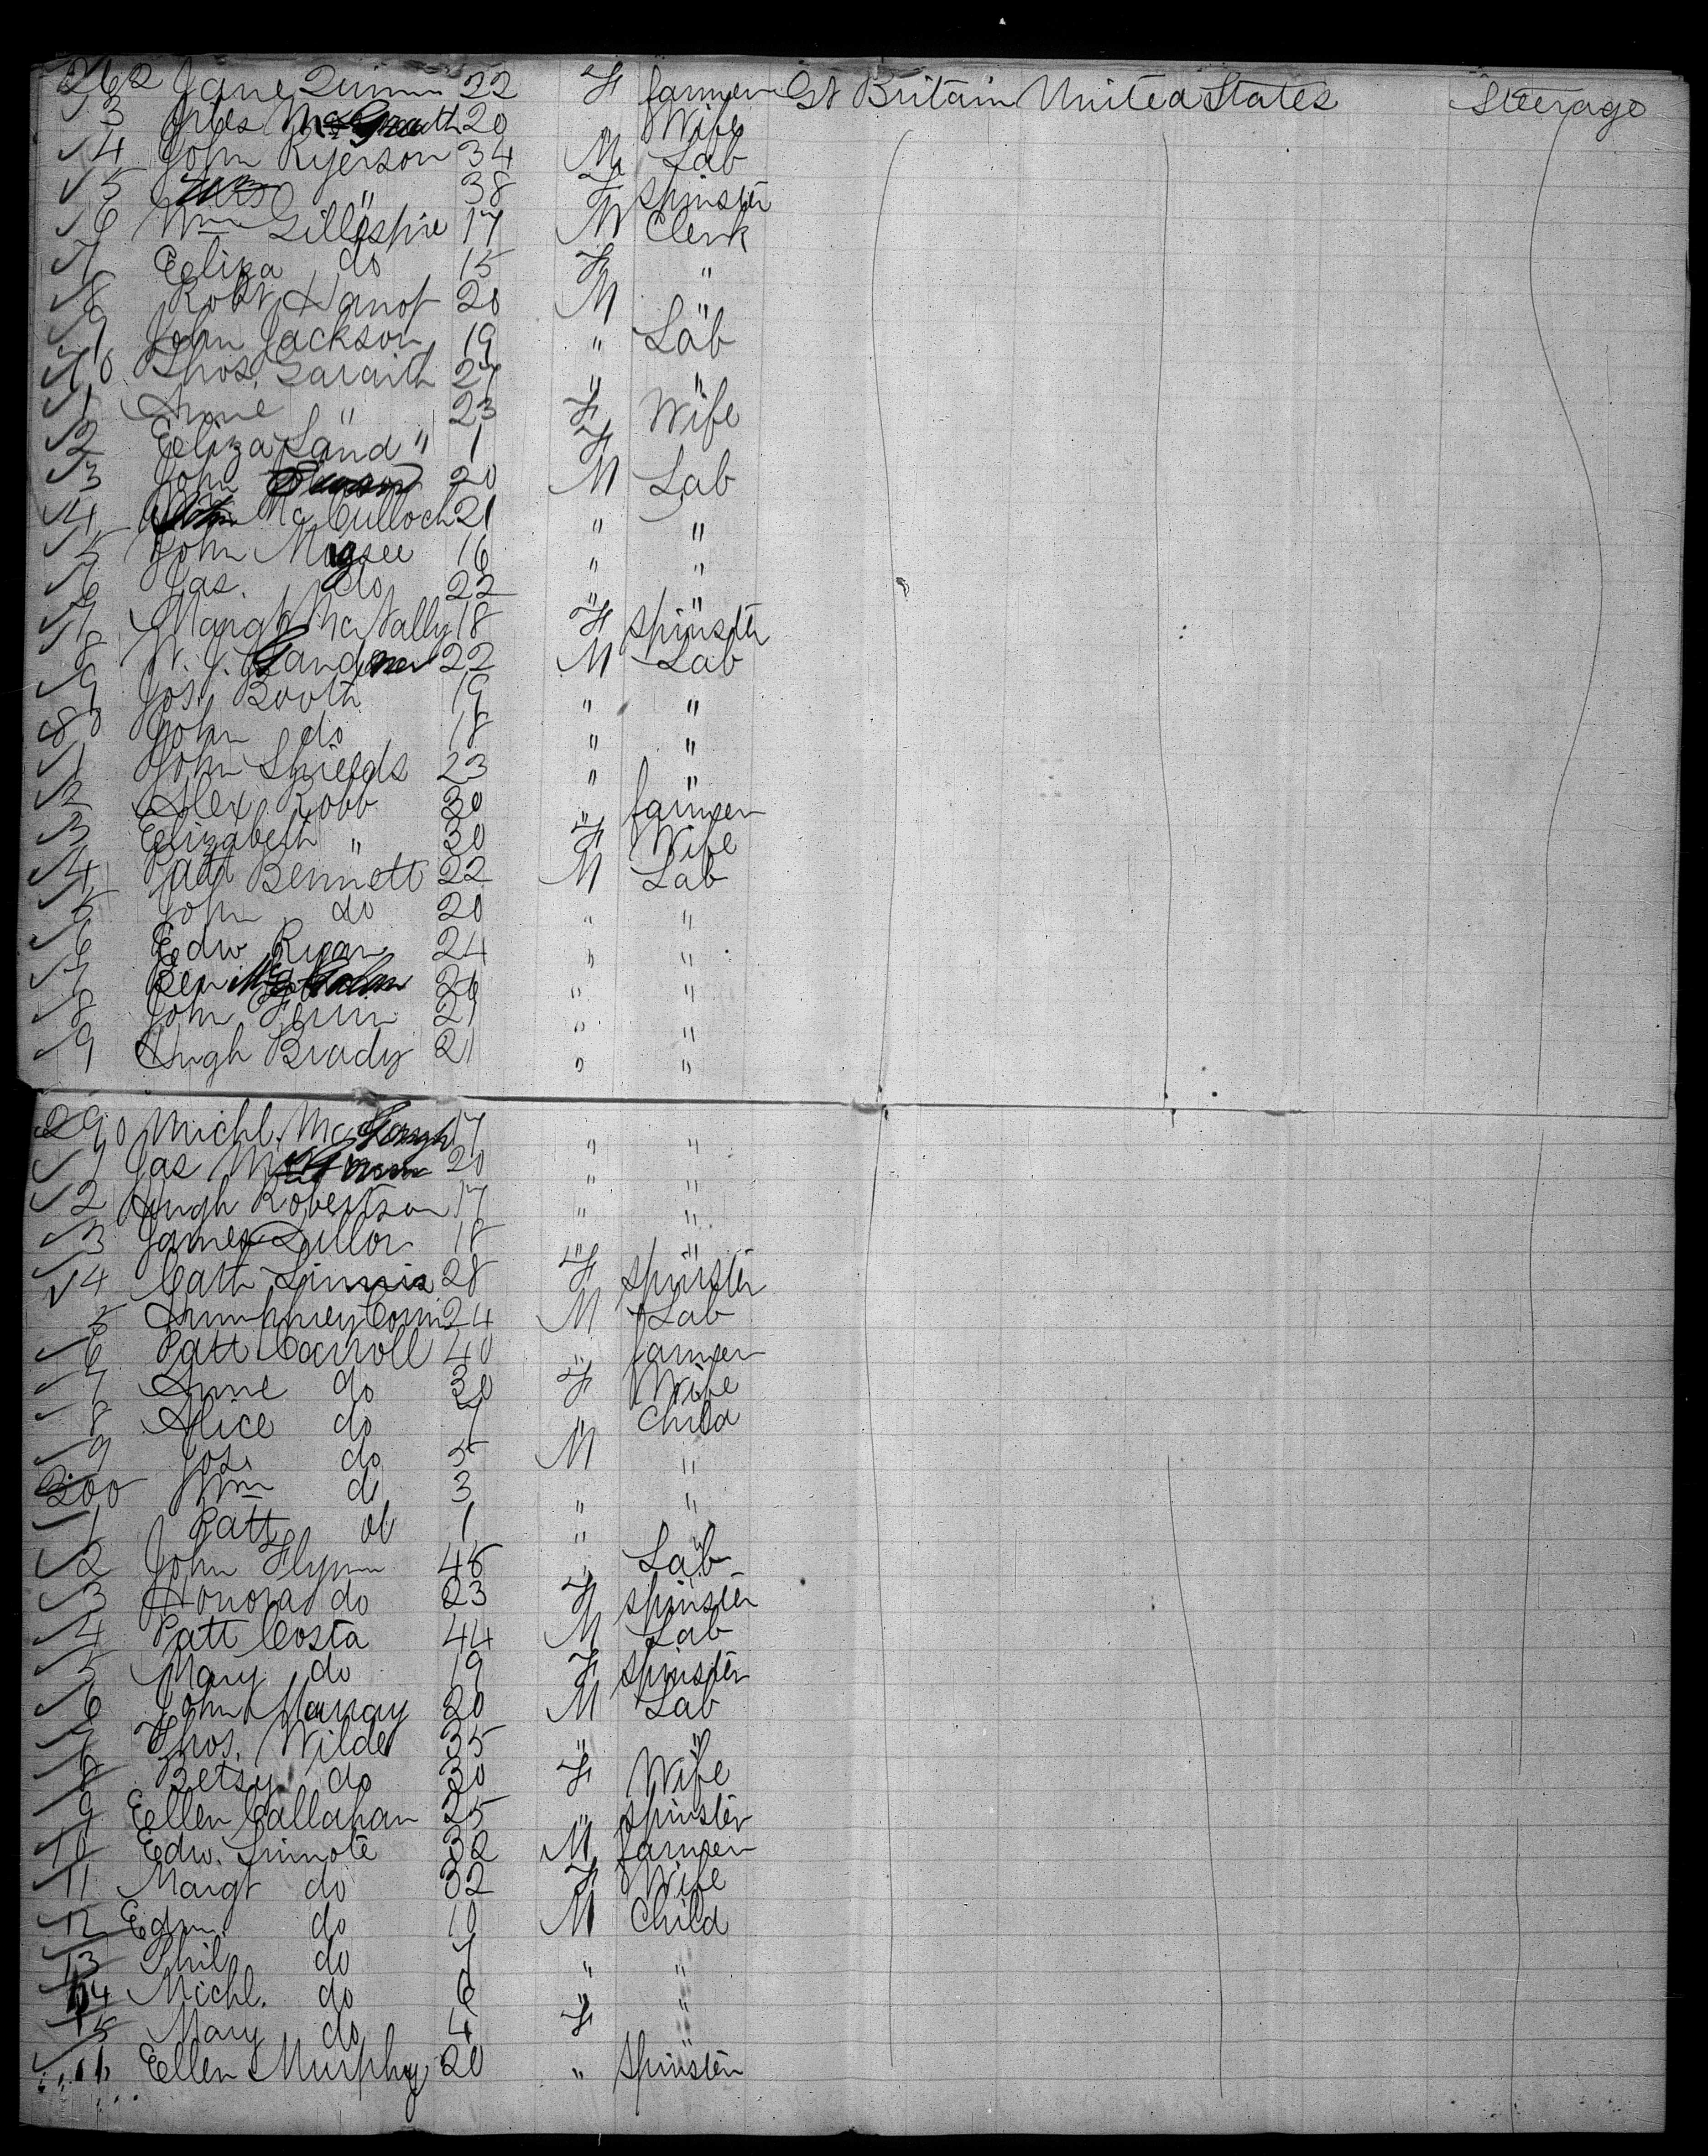 262 Jane Quinn 22 F farmer Gt Britain United States Steerage
3 McGrath 20 Wife
4 John Ryerson 34 M Lab
5 " 38 F Spinster
6 Wm Gillespie 17 M Clerk
7 Eliza do 15 F "
8 Robt Hanof 20 M "
9 John Jackson 19 " Lab
70 Thos. Garaith 27 " "
1 Anne " 23 F Wife
2 Eliza Land " 1 F
3 John 20 M Lab
4 McCulloch 21 " "
5 John Magee 16 " "
6 Jas. do 22 " "
7 Margt McNally 18 F Spinster
8 W. J. Gardner 22 M Lab
9 Jos. Booth 19 " "
80 John do 18 " "
1 John Shields 23 " "
2 Alex Robb 30 " farmer
3 Elizabeth " 30 F Wife
4 Patt Bennett 22 M Lab
5 John do 20 " "
6 Edw Ryan 24 " "
7 Ben 26 " "
8 John Flinn 21 " "
9 Hugh Brady 21 " "
290 Michl. McGough 17 " "
1 Jas 20 " "
2 Hugh Robertson 17 " "
3 James Dillon 18 " "
4 Cath 28 F Spinster
5 Humphrey Corn 24 M Lab
6 Patt Carroll 40 " farmer
7 Anne do 30 F Wife
8 Alice do 7 " Child
9 Jos. do 5 M "
300 Wm do 3 " "
1 Patt do 1 "
2 John Flynn 45 " Lab
3 Honora do 23 F Spinster
4 Patt Costa 44 M Lab
5 Mary do 19 F Spinster
6 John Murray 20 M Lab
7 Thos. Wilde 35 " "
8 Betsy do 30 F Wife
9 Ellen Callahan 25 " Spinster
10 Edw. Sinnote 32 M farmer
11 Margt do 32 F Wife
12 Edw. do 10 M Child
13 Phil do 7 " "
14 Michl. do 6 " "
15 Mary do 4 F "
Ellen Murphy 20 " Spinster